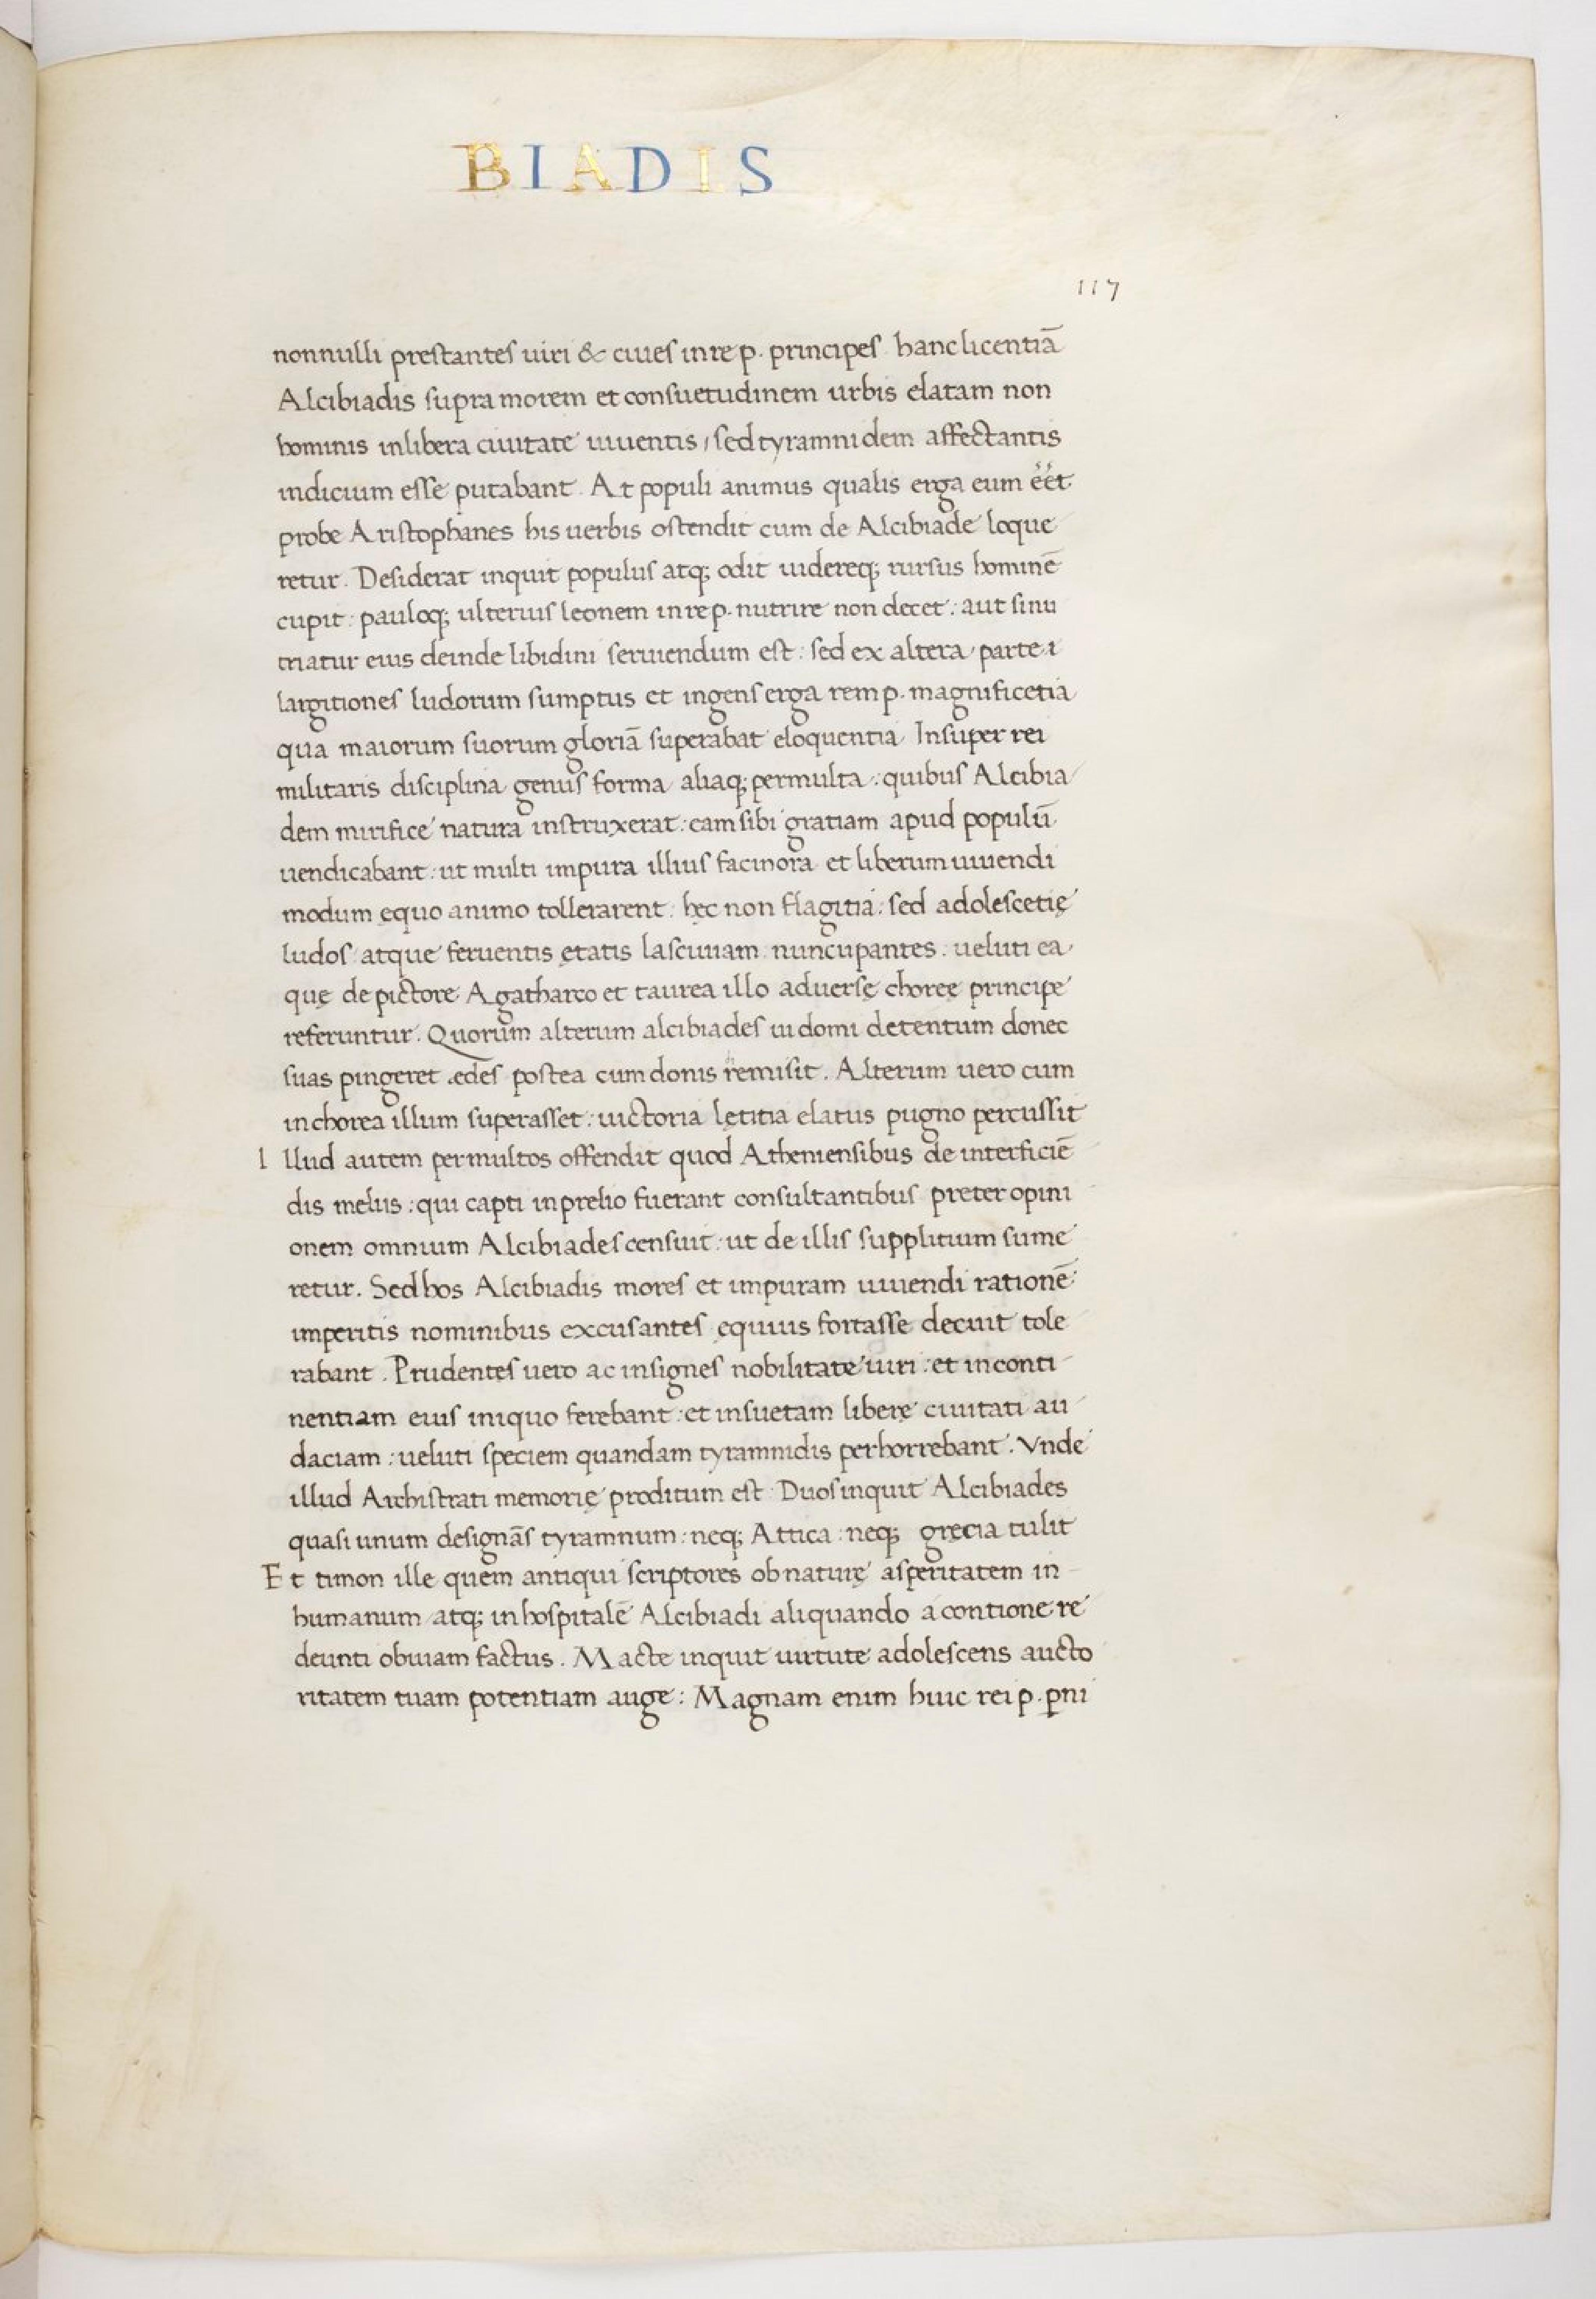 BIADIS
117
nonnulli prestantes uiri & ciues in re p. principes hanc licentiā
Alcibiadis supra morem et consuetudinem urbis elatam non
hominis in libera ciuitate uiuentis, sed tyramnidem affectantis
indicium esse putabant. At populi animus qualis erga eum eet
probe Aristophanes his uerbis ostendit cum de Alcibiade loque
retur. Desiderat inquit populus atq; odit uidereq; rursus hominē
cupit: pauloq; ulterius leonem in re p. nutrire non decet: aut sinu
triatur eius deinde libidini seruiendum est: sed ex altera parte
largitiones ludorum sumptus et ingens erga rem p. magnificetia
qua maiorum suorum gloriā superabat eloquentia Insuper rei
militaris disciplina genus forma aliaq; permulta: quibus Alcibia
dem mirifice natura instruxerat: eam sibi gratiam apud populū
uendicabant: ut multi impura illius facinora et liberum uiuendi
modum ęquo animo tollerarent: hęc non flagitia: sed adolescetię
ludos atque feruentis ętatis lasciuiam nuncupantes. ueluti ea
quę de pictore Agatharco et taurea illo aduersę choreę principe
referuntur. Quorum alterum alcibiades ui domi detentum donec
suas pingeret ędes postea cum donis remisit. Alterum uero cum
in chorea illum superasset: uictoria lętitia elatus pugno percussit
I llud autem permultos offendit quod Atheniensibus de interficiē
dis melus: qui capti in prelio fuerant consultantibus preter opini
onem omnium Alcibiades censuit: ut de illis supplitium sume
retur. Sed hos Alcibiadis mores et impuram uiuendi rationē
imperitis nominibus excusantes ęquius fortasse decuit tole
rabant. Prudentes uero ac insignes nobilitate uiri: et inconti
nentiam eius iniquo ferebant: et insuetam liberę ciuitati au
daciam: ueluti speciem quandam tyramnidis perhorrebant. Vnde
illud Archistrati memorię proditum est Duos inquit Alcibiades
quasi unum designās tyramnum: neq; Attica: neq; gręcia tulit
Et timon ille quem antiqui scriptores ob naturę asperitatem in
humanum atq; inhospitalē Alcibiadi aliquando a contione re
deunti obuiam factus. Macte inquit uirtute adolescens aucto
ritatem tuam potentiam auge: Magnam enim huic rei p. pni